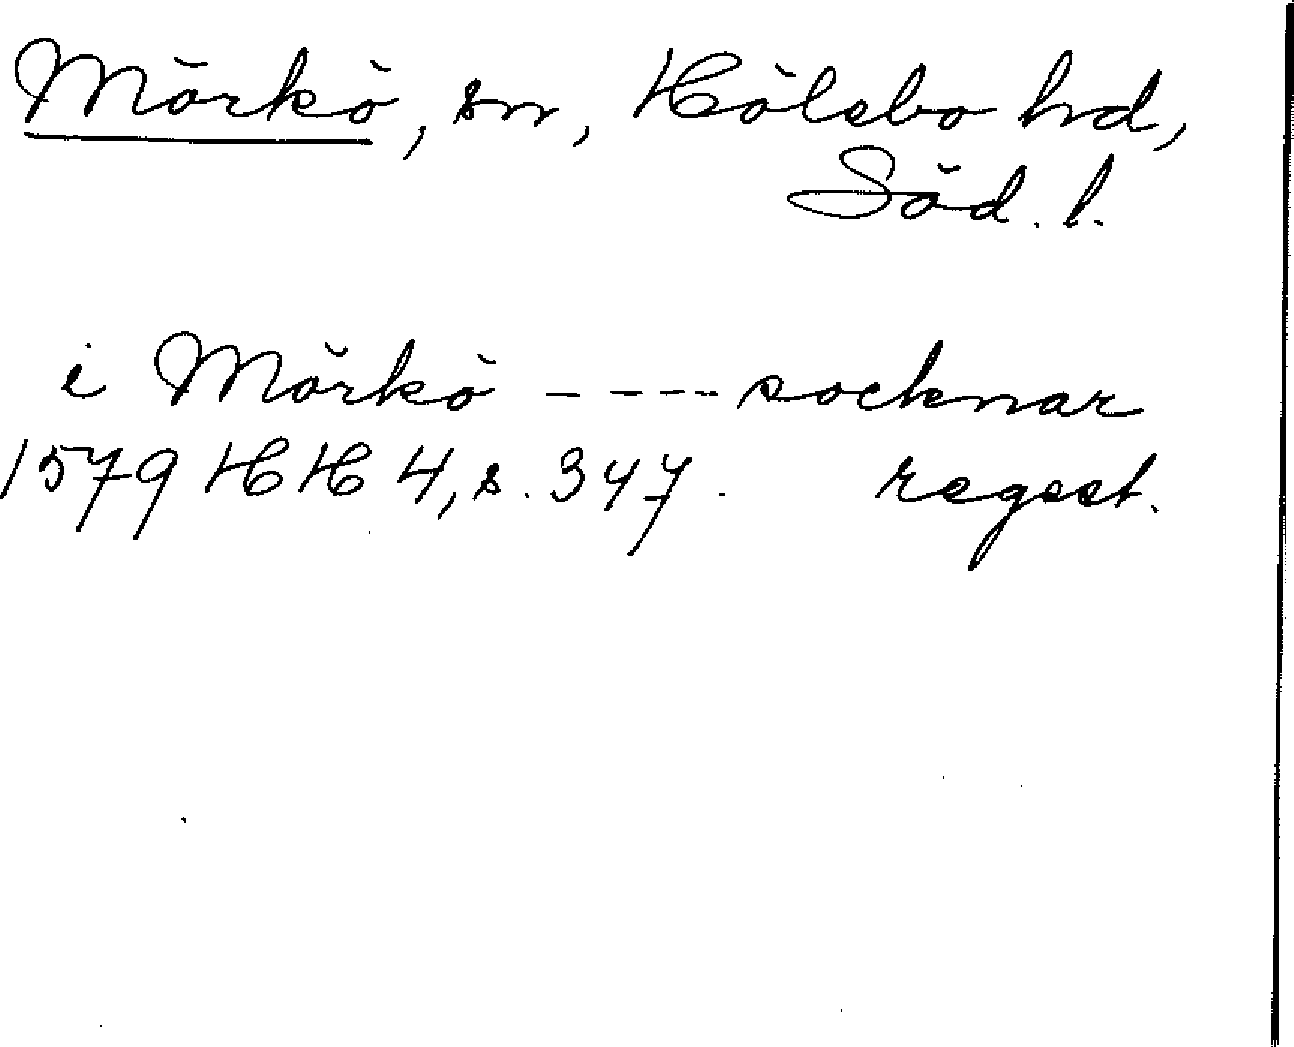 Mörkö, sn, Hölebo hd,
Söd. l.
i Mörkö ---- socknar
1579 HH 4, s. 347. regest.